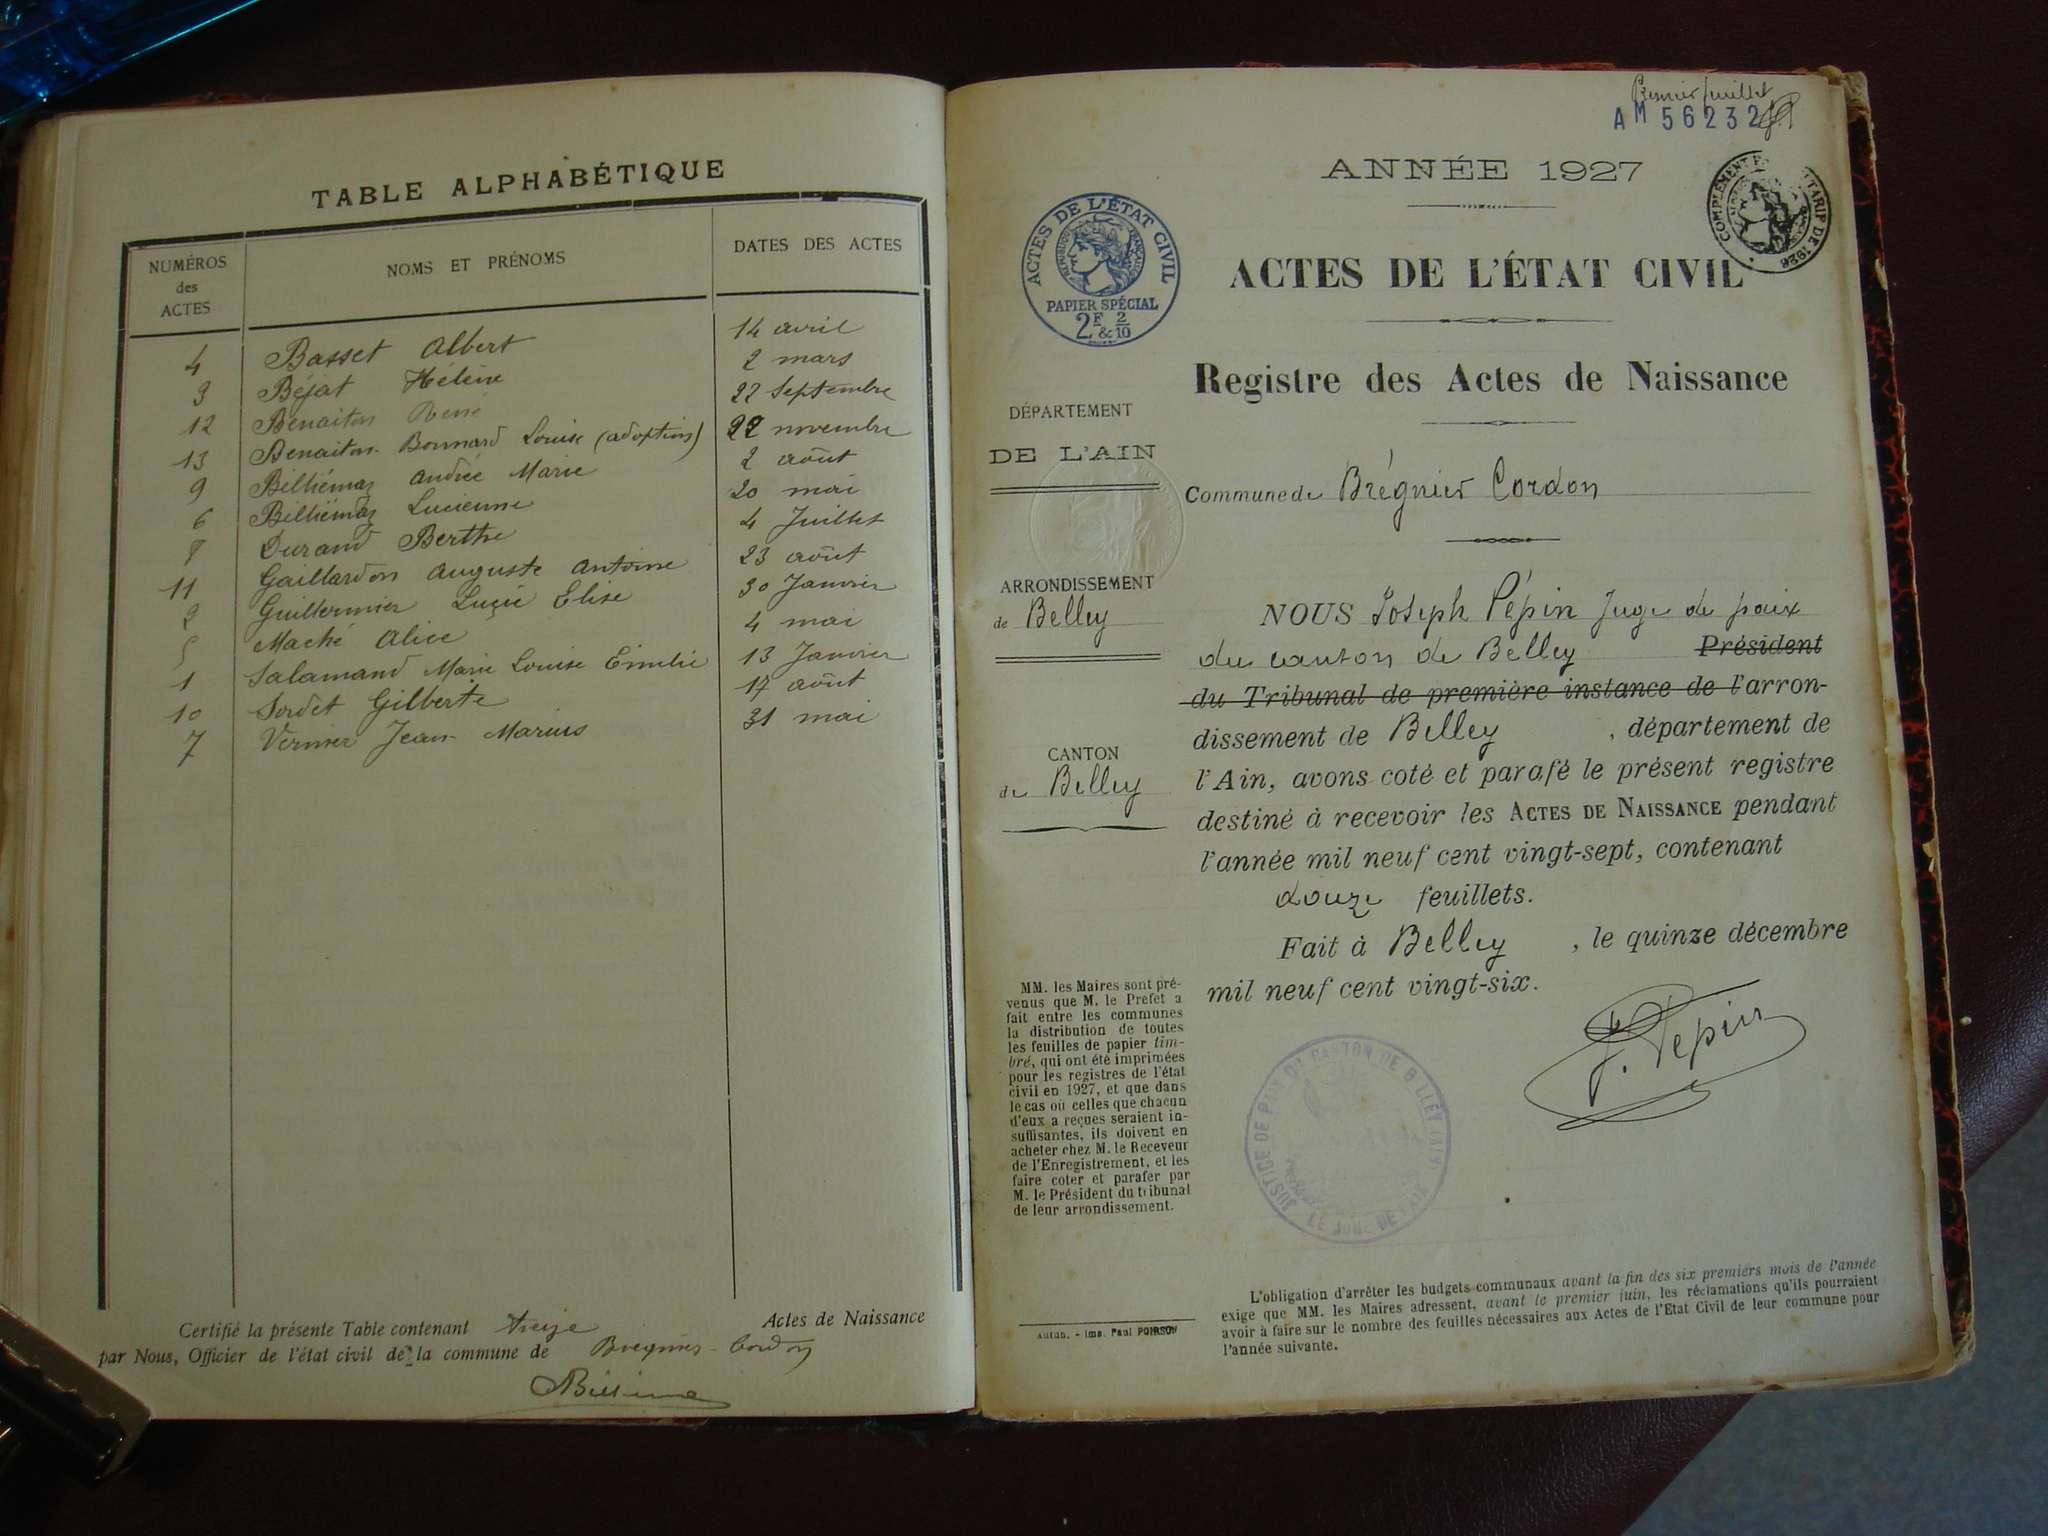 TABLE ALPHABÉTIQUE
NUMÉROS des ACTES
NOMS ET PRÉNOMS
DATES DES ACTES
4 Basset Albert 14 avril
3 Béjat Hélène 2 mars
12 Benaiton René 22 septembre
13 Benaiton Bonnard Louise (adoption) 22 novembre
9 Billiémaz Andrée Marie 2 août
6 Billiémaz Lucienne 20 mai
8 Durand Berthe 4 Juillet
11 Gaillardon Auguste Antoine 23 août
2 Guillermier Lucie Elise 30 Janvier
5 Maché Alice 4 mai
1 Salamand Marie Louise Emilie 13 Janvier
10 Sordet Gilberte 17 août
7 Vernier Jean Marius 31 mai
Certifié la présente Table contenant treize Actes de Naissance
par Nous, Officier de l'état civil de la commune de Bregnier-Cordon
Premier feuillet
AM 56232
ANNÉE 1927
COMPLÉMENT TARIF DE 1926
ACTES DE L'ÉTAT CIVIL
RÉPUBLIQUE FRANÇAISE
PAPIER SPÉCIAL
2F & 2/10
ACTES DE L'ÉTAT CIVIL
Registre des Actes de Naissance
DÉPARTEMENT
DE L'AIN
Commune de Brégnier Cordon
ARRONDISSEMENT
de Belley
CANTON
de Belley
NOUS Joseph Pépin Juge de paix
du canton de Belley Président
du Tribunal de première instance de l'arron-
dissement de Belley, département de
l'Ain, avons coté et parafé le présent registre
destiné à recevoir les ACTES DE NAISSANCE pendant
l'année mil neuf cent vingt-sept, contenant
douze feuillets.
Fait à Belley, le quinze décembre
mil neuf cent vingt-six.
J. Pepin
JUSTICE DE PAIX DU CANTON DE BELLEY (AIN)
LE JUGE DE PAIX
MM. les Maires sont pré-
venus que M. le Prefet a
fait entre les communes
la distribution de toutes
les feuilles de papier tim-
bré, qui ont été imprimées
pour les registres de l'état
civil en 1927, et que dans
le cas où celles que chacun
d'eux a reçues seraient in-
suffisantes, ils doivent en
acheter chez M. le Receveur
de l'Enregistrement, et les
faire coter et parafer par
M. le Président du tribunal
de leur arrondissement.
Autun. - Imp. Paul POIRSON
L'obligation d'arrêter les budgets communaux avant la fin des six premiers mois de l'année
exige que MM. les Maires adressent, avant le premier juin, les réclamations qu'ils pourraient
avoir à faire sur le nombre des feuilles nécessaires aux Actes de l'Etat Civil de leur commune pour
l'année suivante.